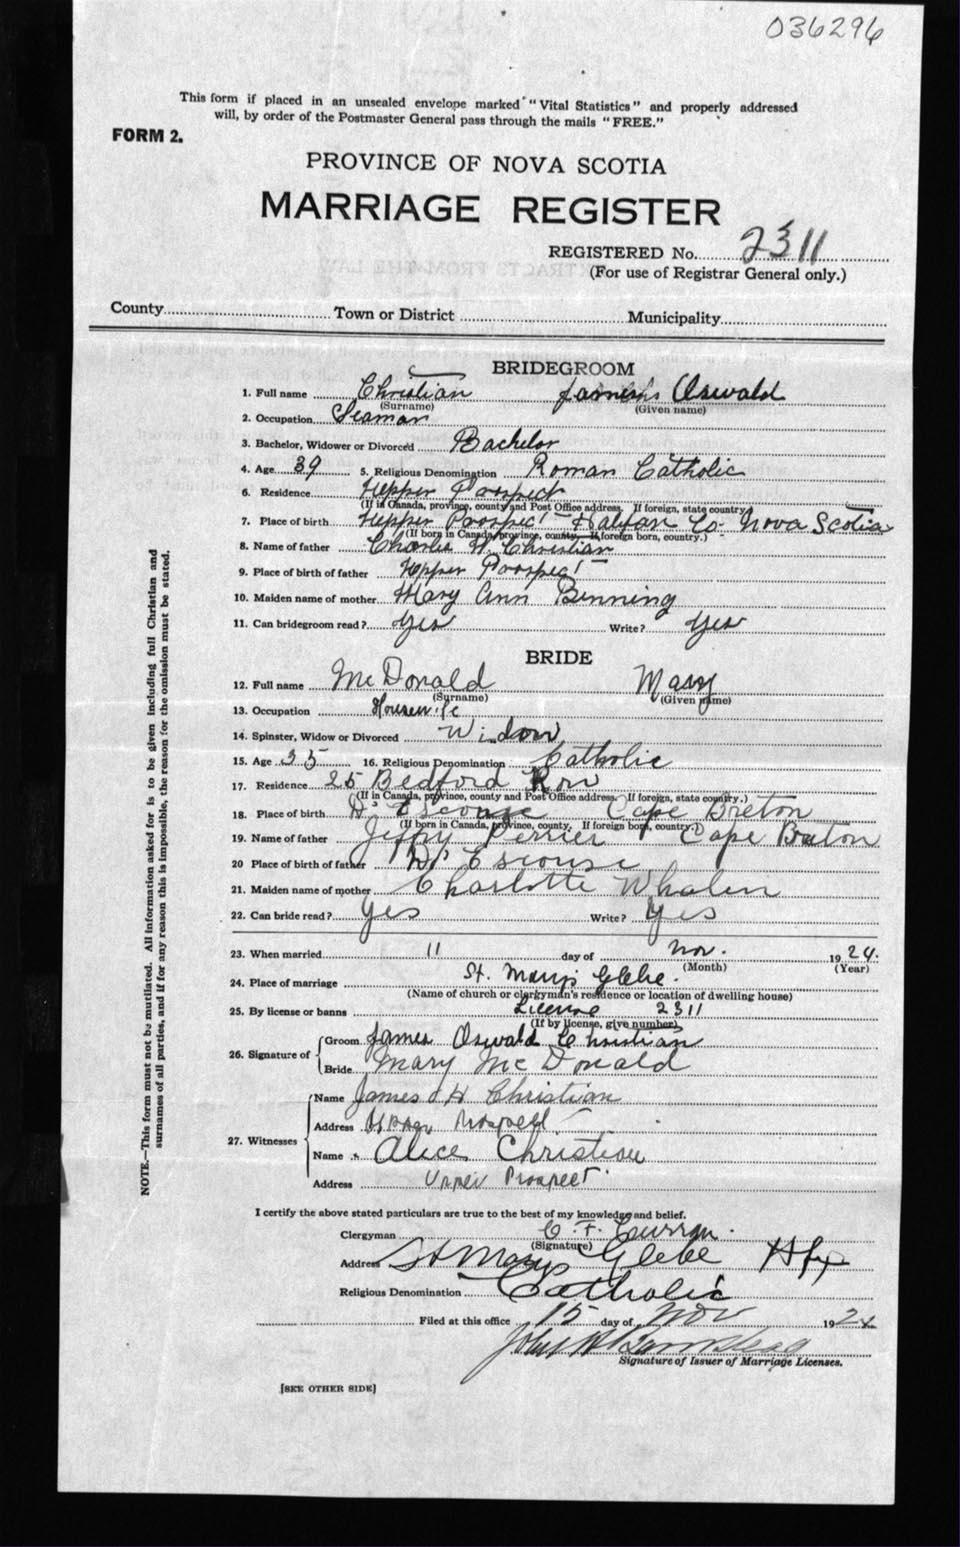 036296
This form if placed in an unsealed envelope marked "Vital Statistics" and properly addressed
will, by order of the Postmaster General pass through the mails "FREE."
FORM 2.
PROVINCE OF NOVA SCOTIA
MARRIAGE REGISTER
REGISTERED No. 2311
(For use of Registrar General only.)
County Town or District Municipality
BRIDEGROOM
1. Full name Christian James Oswald
(Surname) (Given name)
2. Occupation Seaman
3. Bachelor, Widower or Divorced Bachelor
4. Age 39 5. Religious Denomination Roman Catholic
6. Residence Upper Prospect
(If in Canada, province, county and Post Office address. If foreign, state country)
7. Place of birth Upper Prospect Halifax Co. Nova Scotia
(If born in Canada, province, county. If foreign born, country.)
8. Name of father Charles W. Christian
9. Place of birth of father Upper Prospect
10. Maiden name of mother Mary Ann Binning
11. Can bridegroom read? Yes Write? Yes
BRIDE
12. Full name McDonald Mary
(Surname) (Given name)
13. Occupation Housewife
14. Spinster, Widow or Divorced Widow
15. Age 35 16. Religious Denomination Catholic
17. Residence 25 Bedford Row
(If in Canada, province, county and Post Office address. If foreign, state country.)
18. Place of birth D'Escouse Cape Breton
(If born in Canada, province, county. If foreign born, country.)
19. Name of father Perrier Cape Breton
20 Place of birth of father D'Escouse
21. Maiden name of mother Charlotte Whalen
22. Can bride read? Yes Write? Yes
23. When married 11 day of Nov. 1924.
(Month) (Year)
24. Place of marriage St. Mary's Glebe.
(Name of church or clergyman's residence or location of dwelling house)
25. By license or banns License 2311
(If by license, give number)
26. Signature of Groom James Oswald Christian
Bride Mary McDonald
27. Witnesses Name James H Christian
Address Upper Prospect
Name Alice Christian
Address Upper Prospect
I certify the above stated particulars are true to the best of my knowledge and belief.
Clergyman C. F. Curran.
(Signature)
Address St Marys Glebe Hfx
Religious Denomination Catholic
Filed at this office 15 day of Nov 1924
John
Signature of Issuer of Marriage Licenses.
[SEE OTHER SIDE]
NOTE.—This form must not be mutilated. All information asked for is to be given including full Christian and
surnames of all parties, and if for any reason this is impossible, the reason for the omission must be stated.